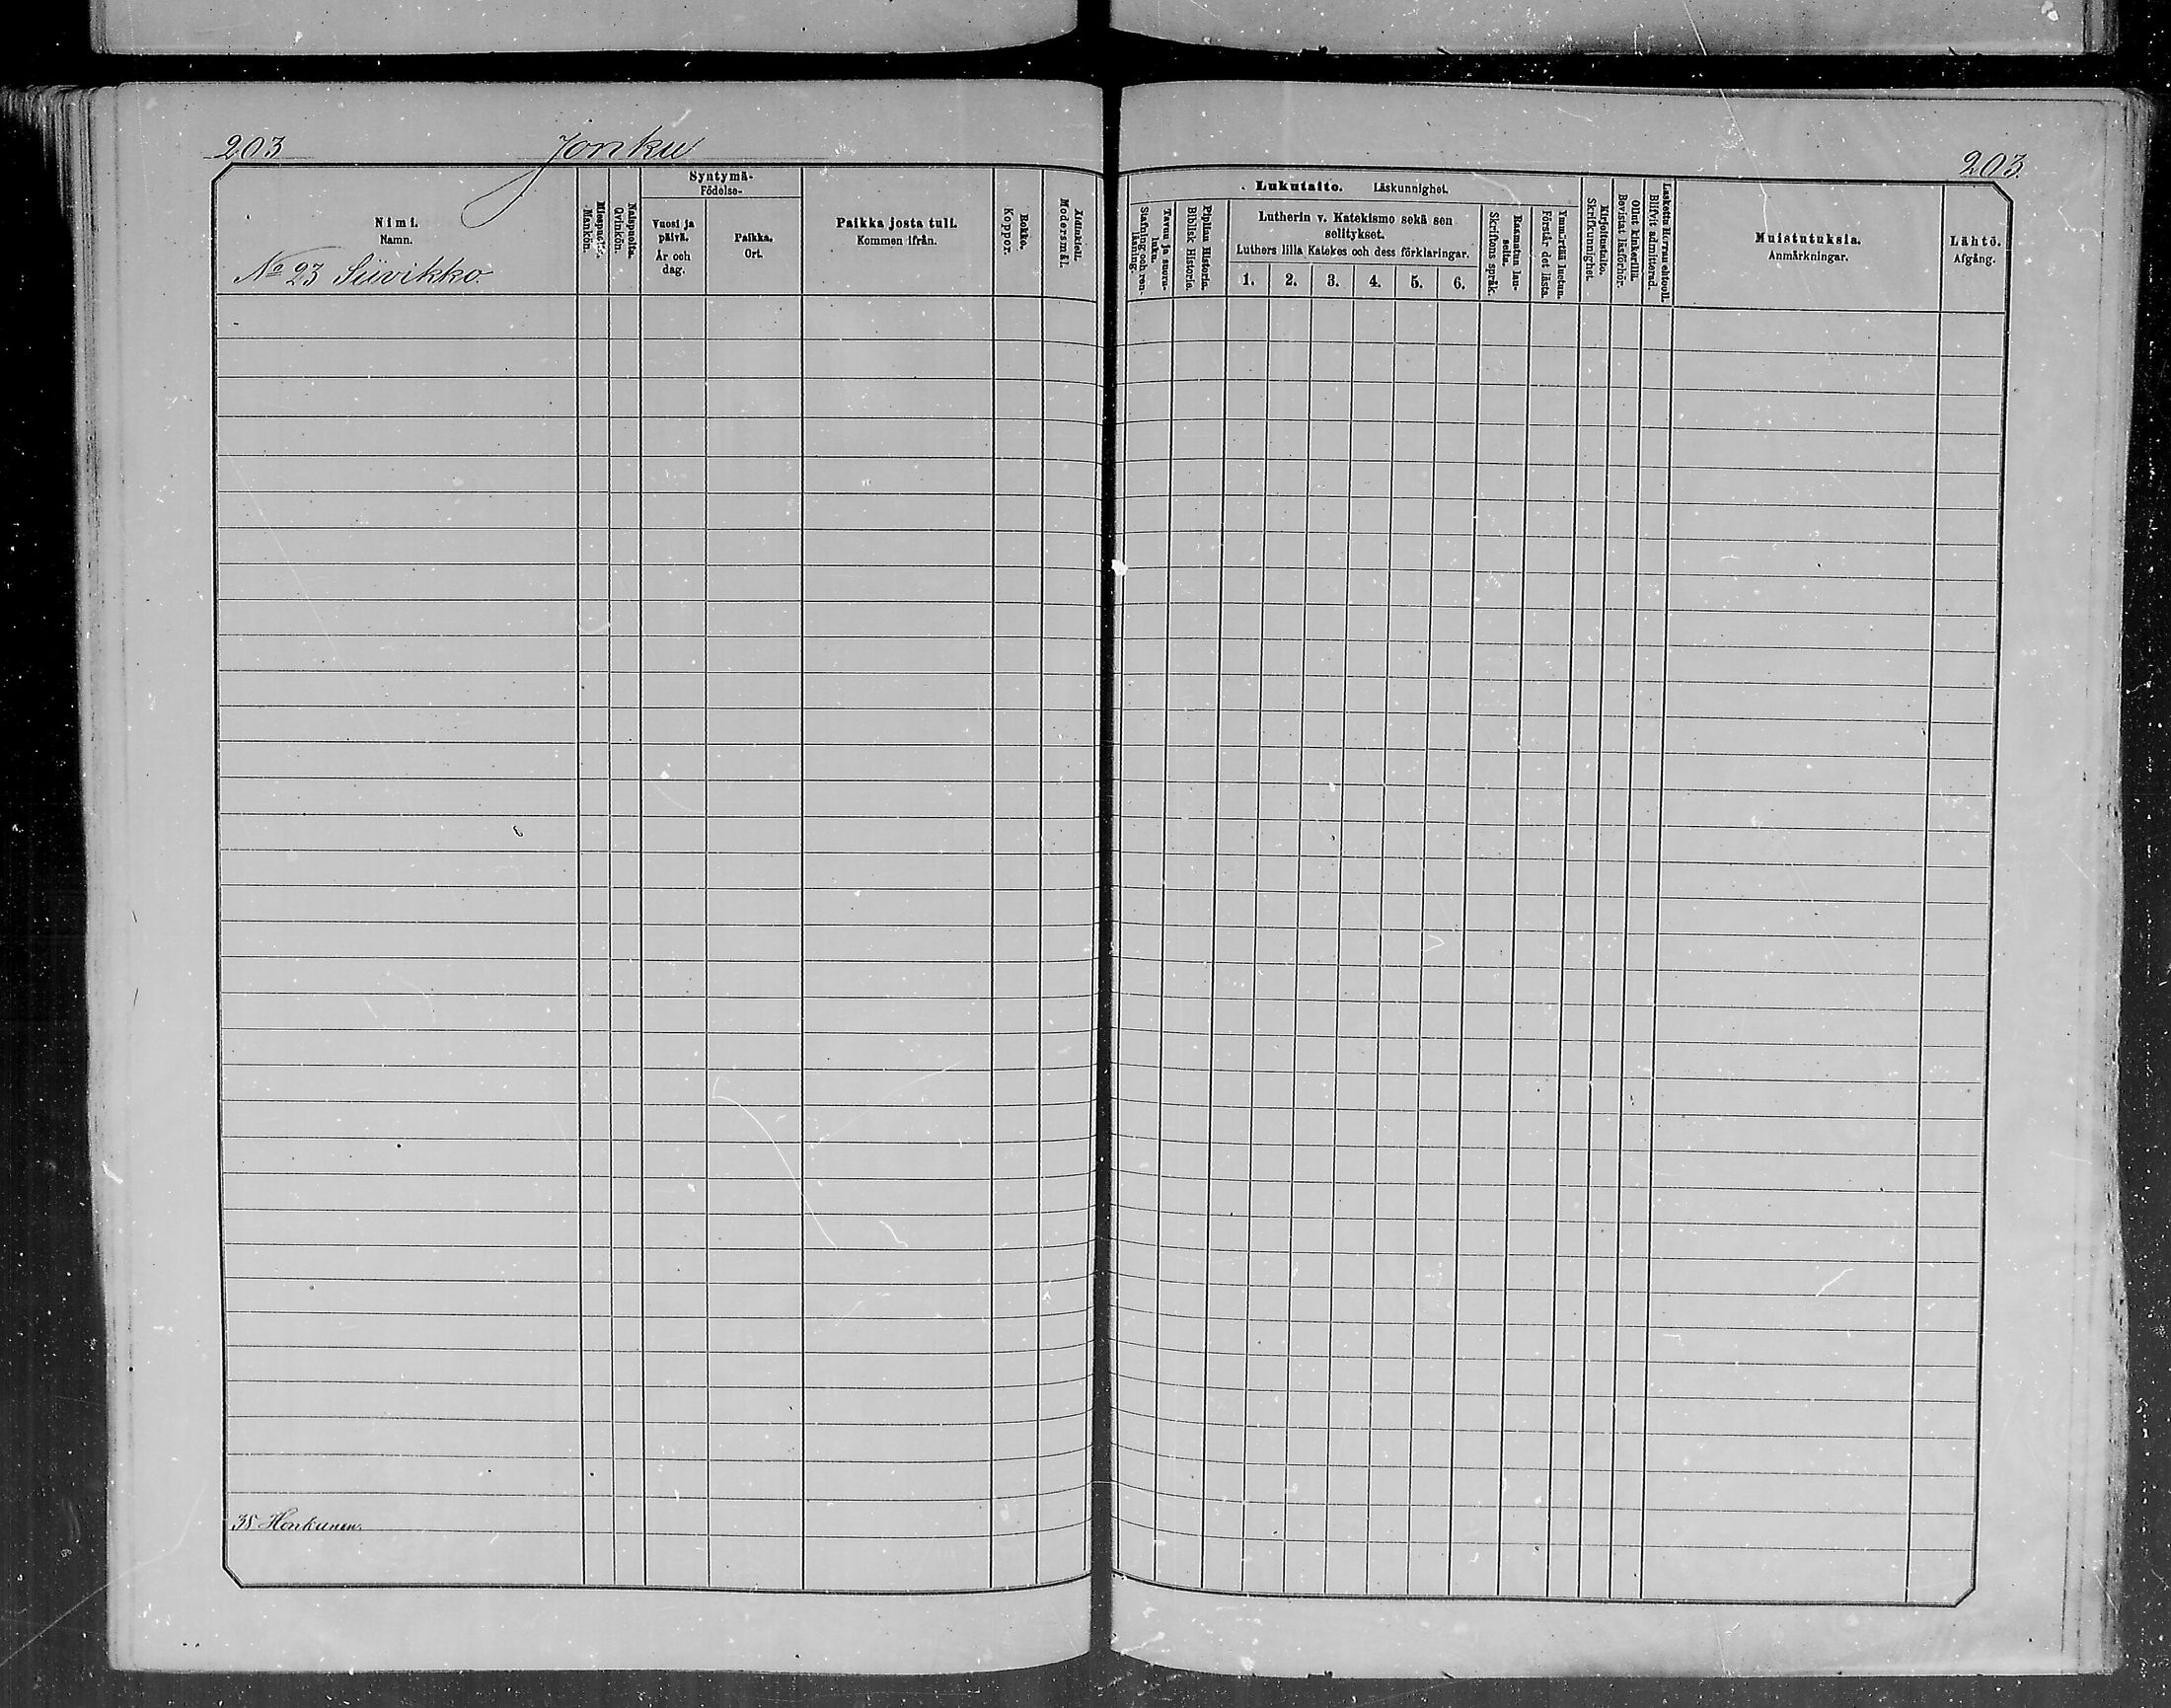 203
Jonku
203
Nimi.
Namn.
No 23 Siivikko.
Miespuolia.
Mankön.
Naispuolia.
Qvinkön.
Syntymä-
Födelse-
Vuosi ja
päivä.
År och
dag.
Paikka.
Ort.
Paikka josta tuli.
Kommen ifrån.
Rokko.
Koppor.
Äidinkieli.
Modersmål.
Lukutaito. Läskunnighet.
Tavuu ja suora-
luku.
Stafning och ren-
läsning.
Piplian Historia.
Biblisk Historia.
Lutherin v. Katekismo sekä sen
selitykset.
Luthers lilla Katekes och dess förklaringar.
1. 2. 3. 4. 5. 6.
Raamatun lau-
seita.
Skriftens språk.
Ymmärtää luetun.
Förstår det lästa.
Kirjoitustaito.
Skrifkunnighet.
Ollut kinkerillä.
Bevistat läsförhör.
Laskettu Herran ehtooll.
Blifvit admitterad.
Muistutuksia.
Anmärkningar.
Lähtö.
Afgång.
35 Honkunen.